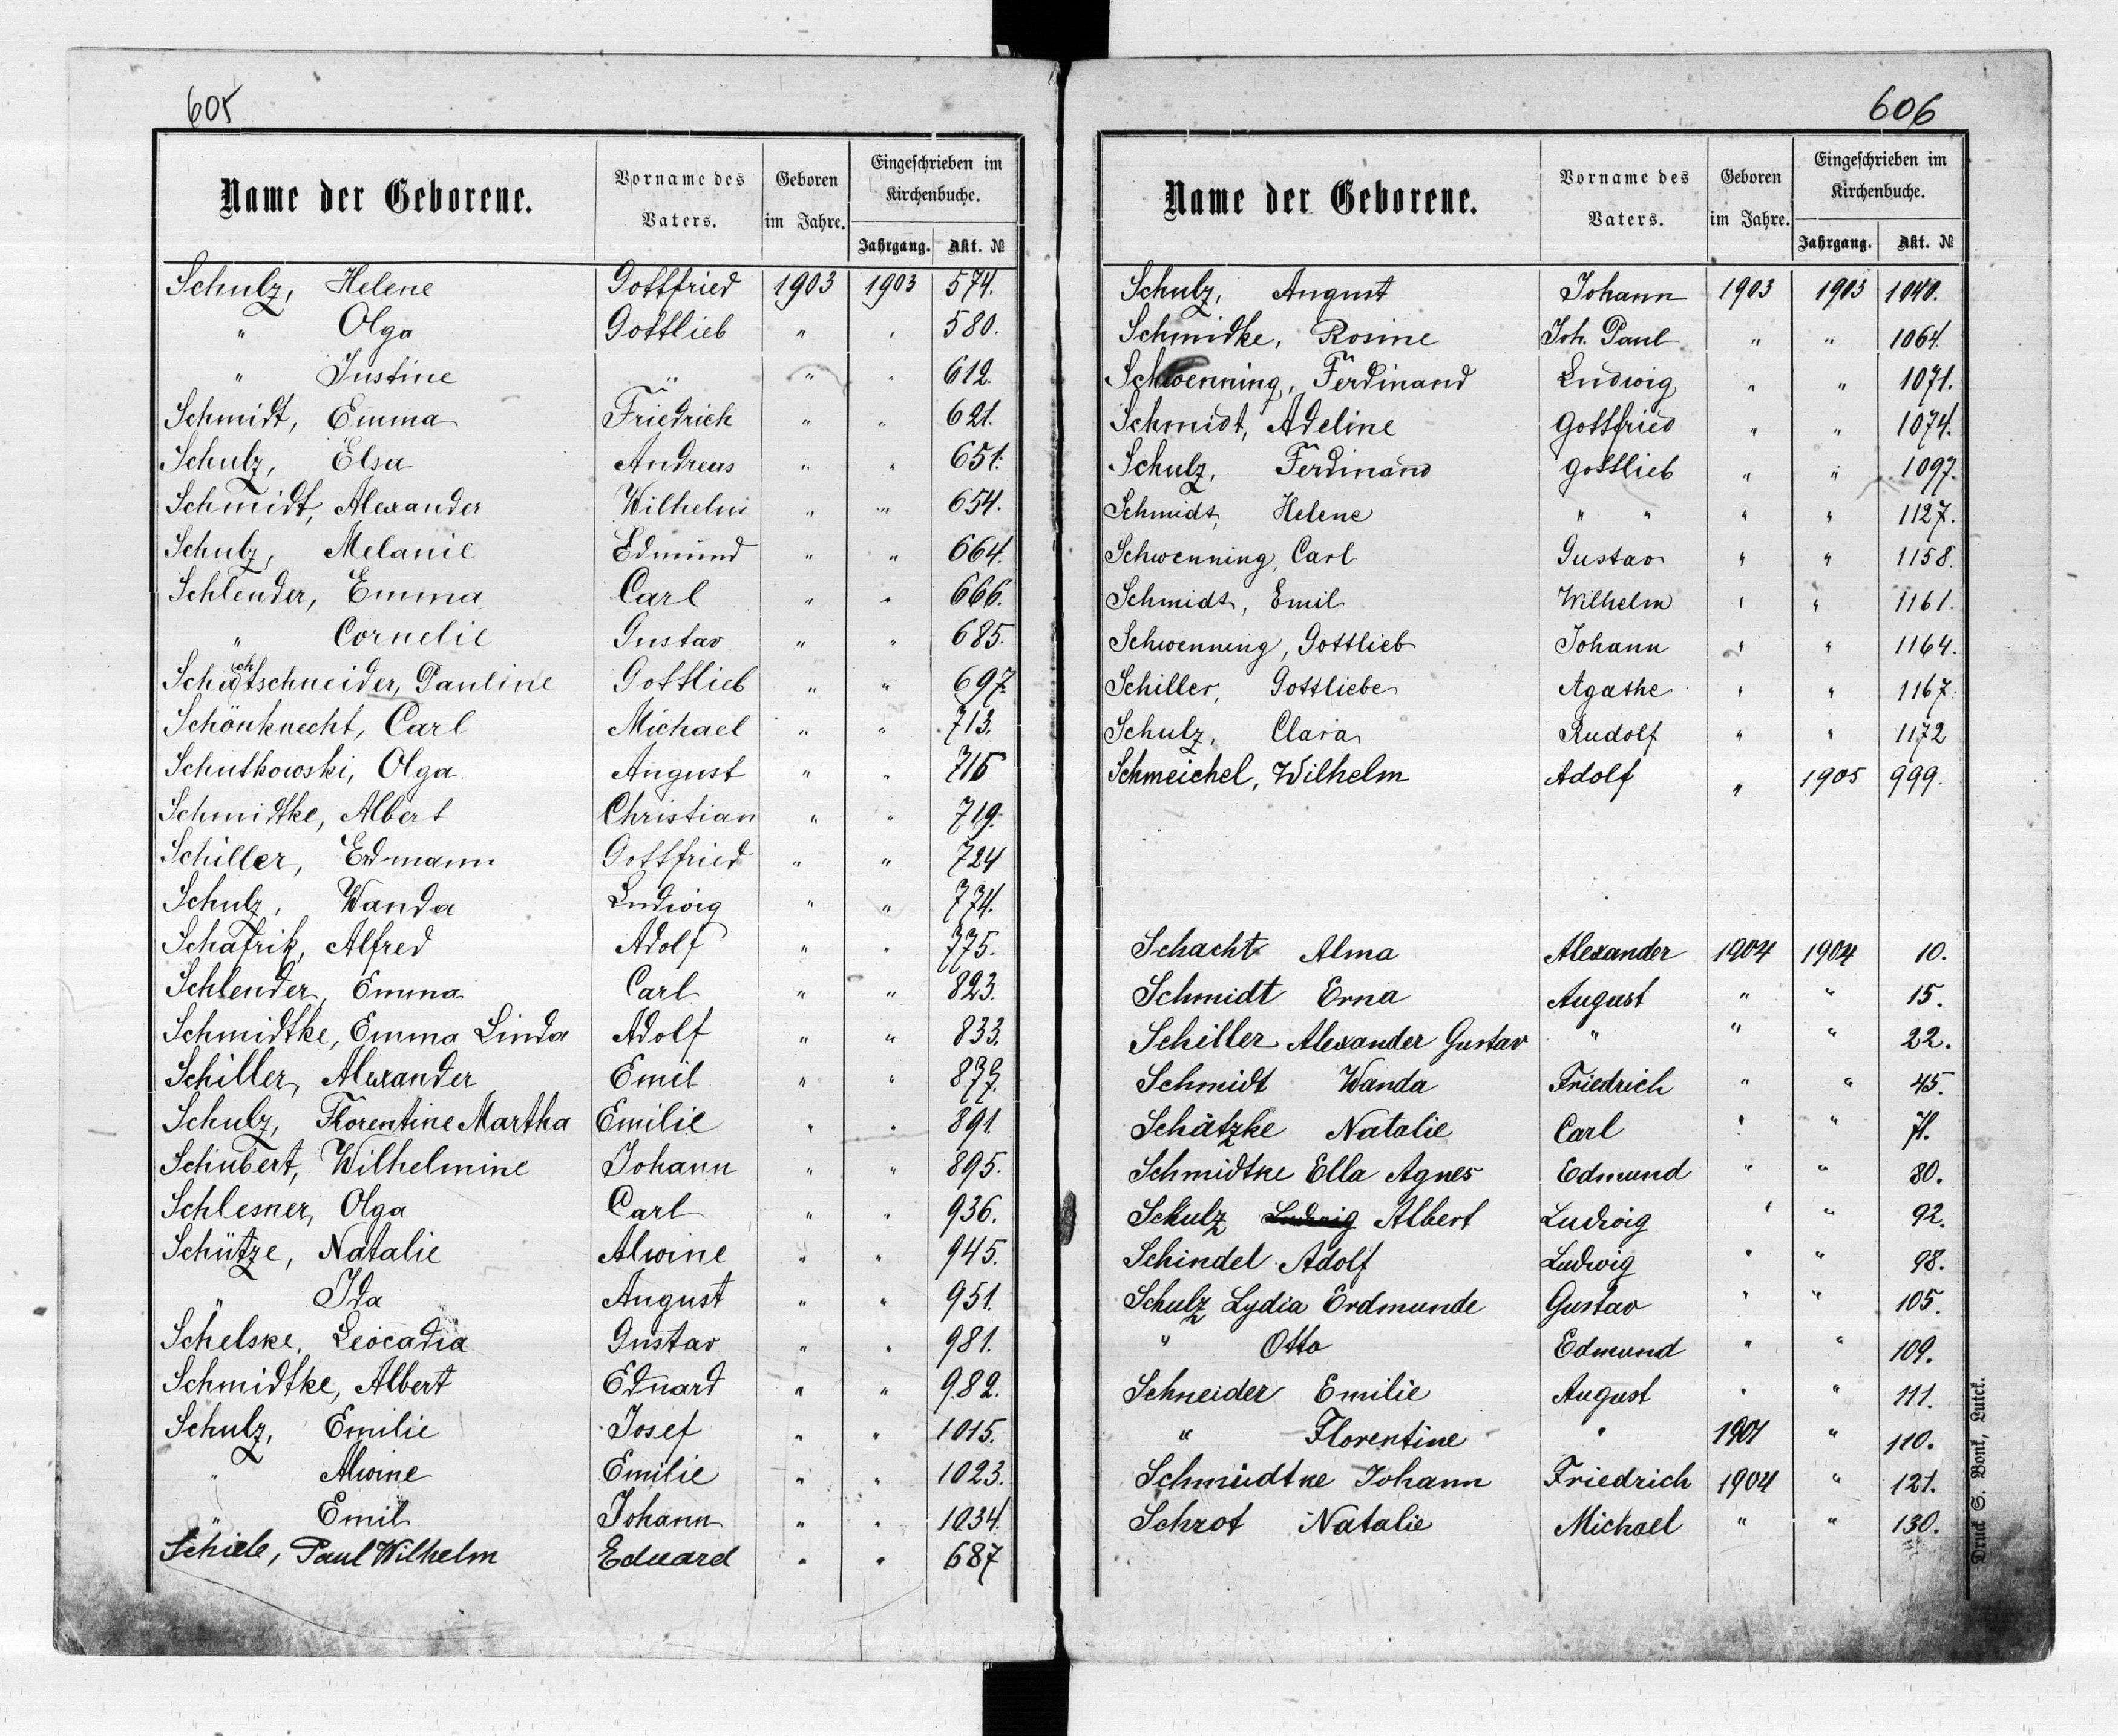 605
Name der Geborene. Vorname des Vaters. Geboren im Jahre. Eingeschrieben im Kirchenbuche. Jahrgang. Akt. №
Schulz, Helene Gottfried 1903 1903 574.
" Olga Gottlieb " " 580.
" Justine " " " 612.
Schmidt, Emma Friedrich " " 621.
Schulz, Elsa Andreas " " 651.
Schmidt, Alexander Wilhelm " " 654.
Schulz, Melanie Edmund " " 664.
Schlender, Emma Carl " " 666.
" Cornelie Gustav " " 685.
Schachtschneider, Pauline Gottlieb " " 697.
Schönknecht, Carl Michael " " 713.
Schutkowski, Olga August " "
Schmidtke, Albert Christian " " 719.
Schiller, Erdmann Gottfried " " 724
Schulz, Wanda Ludwig " " 774.
Schafrik, Alfred Adolf " " 775.
Schlender, Emma Carl " " 823.
Schmidtke, Emma Linda Adolf " " 833.
Schiller, Alexander Emil " " 877.
Schulz, Florentine Martha Emilie " " 891.
Schubert, Wilhelmine Johann " " 895.
Schlesner, Olga Carl " " 936.
Schütze, Natalie Alwine " " 945.
" Ida August " " 951.
Schelske, Leocadia Gustav " " 981.
Schmidtke, Albert Eduard " " 982.
Schulz, Emilie Josef " " 1015.
" Alwine Emilie " " 1023.
" Emil Johann " " 1034.
Schiele, Paul Wilhelm Eduard " " 687
606
Name der Geborene. Vorname des Vaters. Geboren im Jahre. Eingeschrieben im Kirchenbuche. Jahrgang. Akt. №
Schulz, August Johann 1903 1903 1040.
Schmidke, Rosine Joh. Paul " " 1064.
Schwenning, Ferdinand Ludwig " " 1071.
Schmidt, Adeline Gottfried " " 1074.
Schulz, Ferdinand Gottlieb " " 1097.
Schmidt, Helene " " " " 1127.
Schwenning, Carl Gustav " " 1158.
Schmidt, Emil Wilhelm " " 1161.
Schwenning, Gottlieb Johann " " 1164.
Schiller, Gottliebe Agathe " " 1167.
Schulz, Clara Rudolf " " 1172
Schmeichel, Wilhelm Adolf " 1905 999.
Schacht Alma Alexander 1904 1904 10.
Schmidt Erna August " " 15.
Schiller Alexander Gustav " " " 22.
Schmidt Wanda Friedrich " " 45.
Schätzke Natalie Carl " " 71.
Schmidtke Ella Agnes Edmund " " 80.
Schulz Ludwig Albert Ludwig " " 92.
Schindel Adolf Ludwig " " 98.
Schulz Lydia Erdmunde Gustav " " 105.
" Otto Edmund " " 109.
Schneider Emilie August " " 111.
" Florentine " 1901 " 110.
Schmidtke Johann Friedrich 1904 " 121.
Schrot Natalie Michael " " 130.
Druck S. Bonk, Lutck.